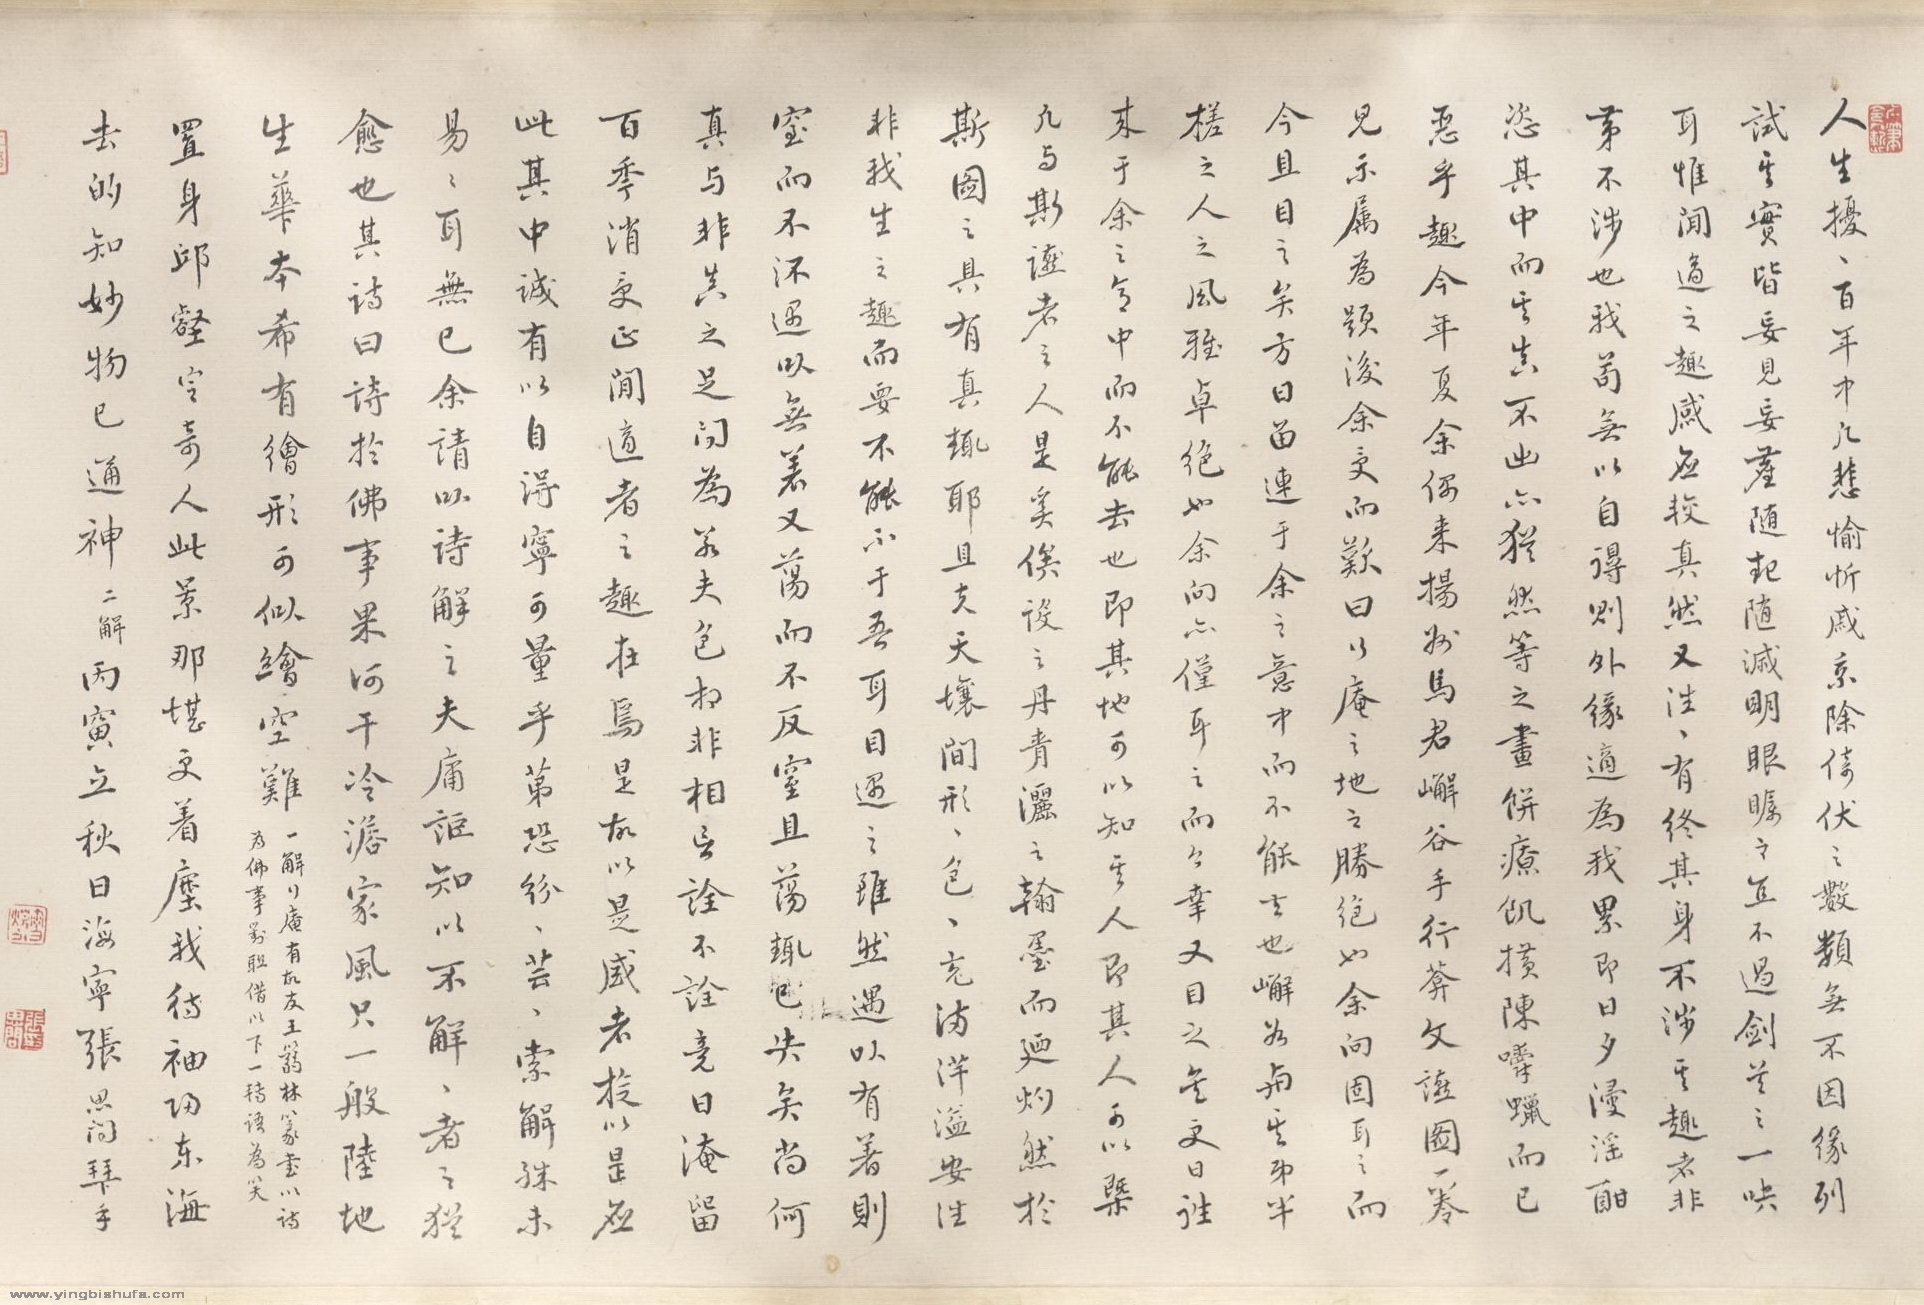 人生擾、百年中凡悲愉忻戚乘除倚伏之數類無不因緣列
試其實皆妄見妄塵隨起隨滅明眼矚之直不過劍首之一吷
耳惟閒適之趣感應較真然又往、有終其身不涉其趣者非
第不涉也我苟無以自得則外緣適為我累即日夕浸淫酣
恣其中而其真不出亦猶然等之畫餅療飢橫陳嚼蠟而已
惡乎趣今年夏余偶來揚州馬君嶰谷手行菴文讌圖一卷
見示屬為題後余受而歎曰行庵之地之勝絕如余向固耳之而
今且目之矣方日留連于余之意中而不能去也嶰谷與其弟半
槎之人之風雅卓絕如余向亦僅耳之而今幸又目之矣更日往
來于余之意中而不能去也即其地可以知其人即其人可以槩
凡与斯讌者之人是奚俟設之丹青灑之翰墨而廼灼然於
斯圖之具有真輒耶且夫天壤間形、色、充滿洋溢安往
非我生之趣而要不能不于吾耳目遇之雖然遇以有著則
窒而不流遇以無著又蕩而不反窒且蕩輒已失矣尚何
真与非真之足問為若夫色相非相言詮不詮竟日淹留
百季消受正閒適者之趣在焉是故以是感者旋以是應
此其中誠有以自得寧可量乎第恐紛、芸、索解殊未
易、耳無已余請以詩解之夫庸詎知以不解、者之猶
愈也其詩曰詩於佛事果何干冷澹家風只一般陸地
生華本希有繪形可似繪空難 一解行庵有故友王蒻林篆書以詩
為佛事對聯借以下一轉語為笑
置身邱壑定奇人此景那堪更着塵我待袖歸東海
去的知妙物已通神 二解 丙寅立秋日海寧張思問拜手
www.yingbishufa.com